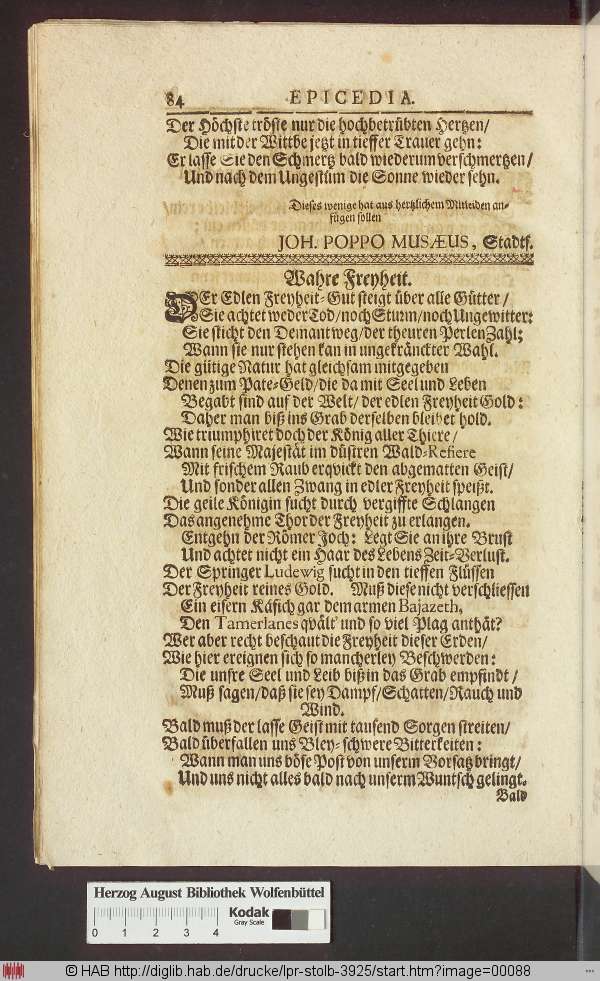 84 EPICEDIA.
Der Höchste tröste nur die hochbetrübten Hertzen/
Die mit der Wittbe jetzt in tieffer Trauer gehn:
Er lasse Sie den Schmertz bald wiederum verschmertzen/
Und nach dem Ungestüm die Sonne wieder sehn.
Dieses wenige hat aus hertzlichem Mitleiden an-
fügen sollen
JOH. POPPO MUSÆUS, Stadtf.
Wahre Freyheit.
DEr Edlen Freyheit-Gut steigt über alle Gütter/
Sie achtet weder Tod/noch Sturm/noch Ungewitter:
Sie sticht den Demant weg/der theuren Perlen Zahl;
Wann sie nur stehen kan in ungekränckter Wahl.
Die gütige Natur hat gleichsam mitgegeben
Denen zum Pate-Geld/die da mit Seel und Leben
Begabt sind auf der Welt/ der edlen Freyheit Gold:
Daher man biß ins Grab derselben bleibet hold.
Wie triumphiret doch der König aller Thiere/
Wann seine Majestät im düstren Wald-Refiere
Mit frischem Raub erqvickt den abgematten Geist/
Und sonder allen Zwang in edler Freyheit speißt.
Die geile Königin sucht durch vergiffte Schlangen
Das angenehme Thor der Freyheit zu erlangen.
Entgehn der Römer Joch: Legt Sie an ihre Brust
Und achtet nicht ein Haar des Lebens Zeit-Verlust.
Der Springer Ludewig sucht in den tieffen Flüssen
Der Freyheit reines Gold. Muß diese nicht verschliessen
Ein eisern Käfich gar dem armen Bajazeth,
Den Tamerlanes qvält und so viel Plag anthät?
Wer aber recht beschaut die Freyheit dieser Erden/
Wie hier ereignen sich so mancherley Beschwerden:
Die unsre Seel und Leib biß in das Grab empfindt/
Muß sagen/daß sie sey Dampf/Schatten/Rauch und
Wind.
Bald muß der lasse Geist mit tausend Sorgen streiten/
Bald überfallen uns Bley-schwere Bitterkeiten:
Wann man uns böse Post von unserm Vorsatz bringt/
Und uns nicht alles bald nach unserm Wuntsch gelingt.
Bald
Herzog August Bibliothek Wolfenbüttel
0 1 2 3 4
Kodak
Gray Scale
© HAB http://diglib.hab.de/drucke/lpr-stolb-3925/start.htm?image=00088